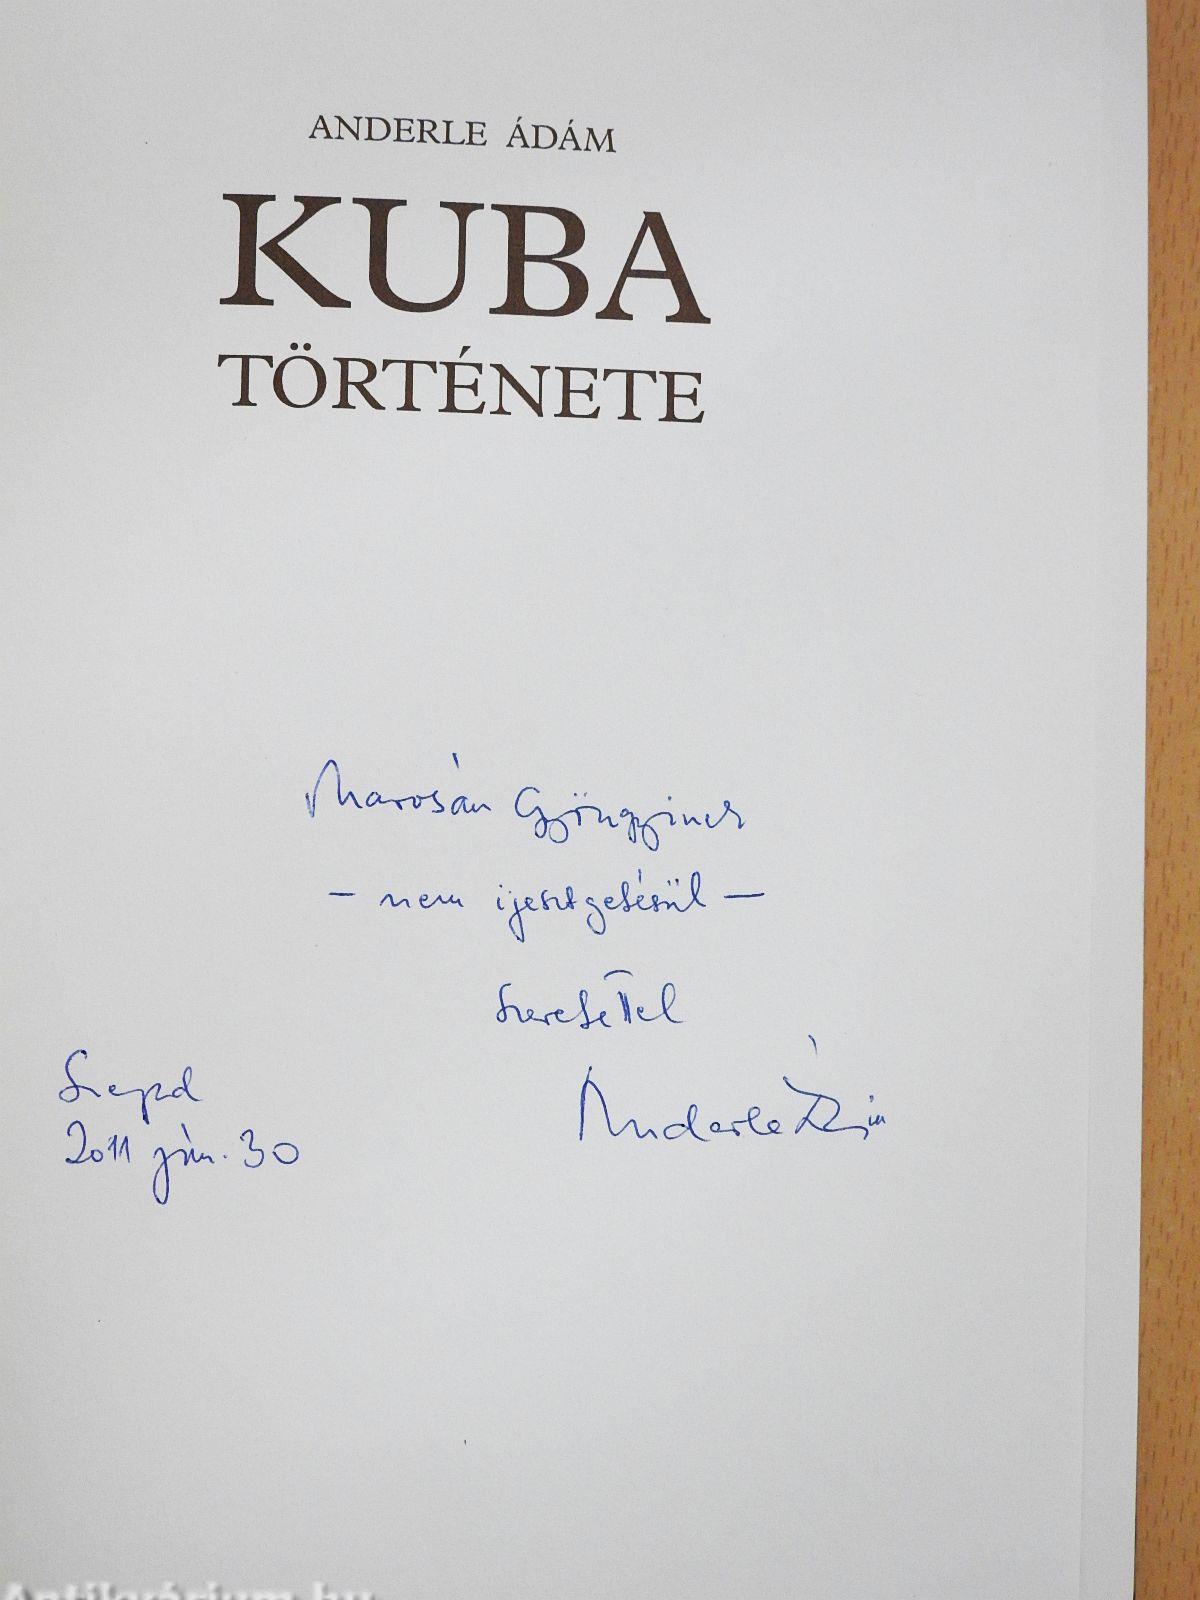 ANDERLE ÁDÁM
KUBA
TÖRTÉNETE
Marosán Gyöngyinek
– nem ijesztgetésül –
szeretettel
Anderle Ádám
Szeged
2011 jún. 30
Antikvárium.hu